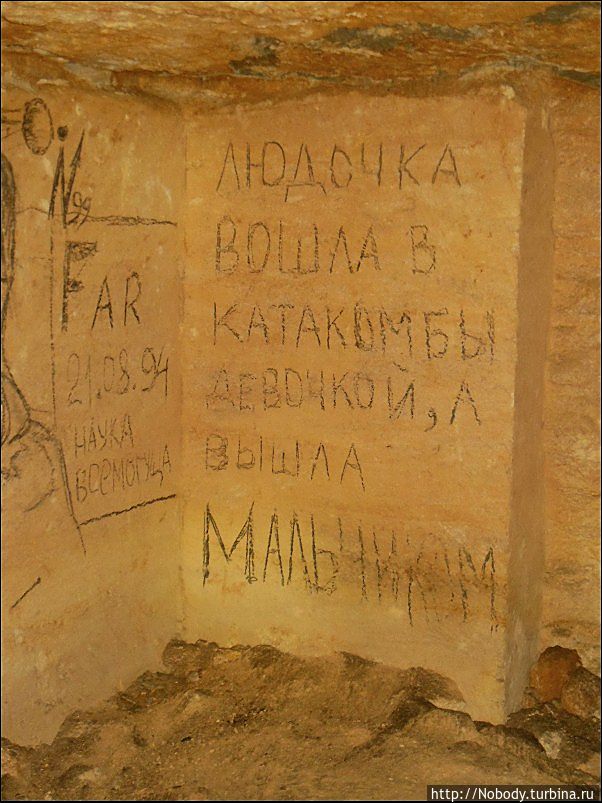 № 99
FAR
21.08.94
НАУКА
ВСЕМОГУЩА
ЛЮДОЧКА
ВОШЛА В
КАТАКОМБЫ
ДЕВОЧКОЙ, А
ВЫШЛА
МАЛЬЧИКОМ
http://Nobody.turbina.ru